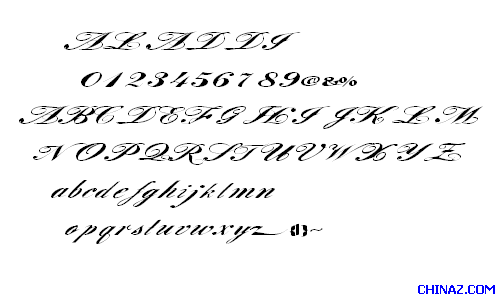 ALADDI
0123456789@&%
ABCDEFGHIJKLM
NOPQRSTUVWXYZ
abcdefghijklmn
opqrstuvwxyz {}~
CHINAZ.COM